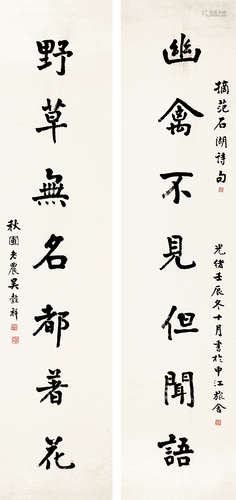 摘范石湖詩句
幽禽不見但聞語
光緒壬辰冬十月書於申江旅舍
野草無名都著花
秋圃老農吳穀祥